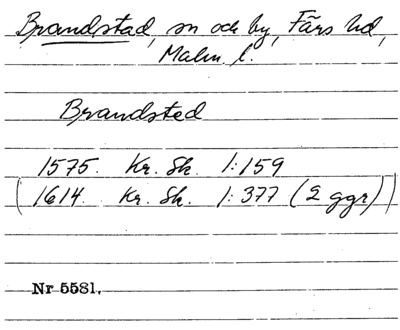 Brandstad, sn och by, Färs hd,
Malm. l.
Brandsted
1575. Kr. Sk. 1:159
(1614. Kr. Sk. 1:377 (2 ggr))
Nr 5581.